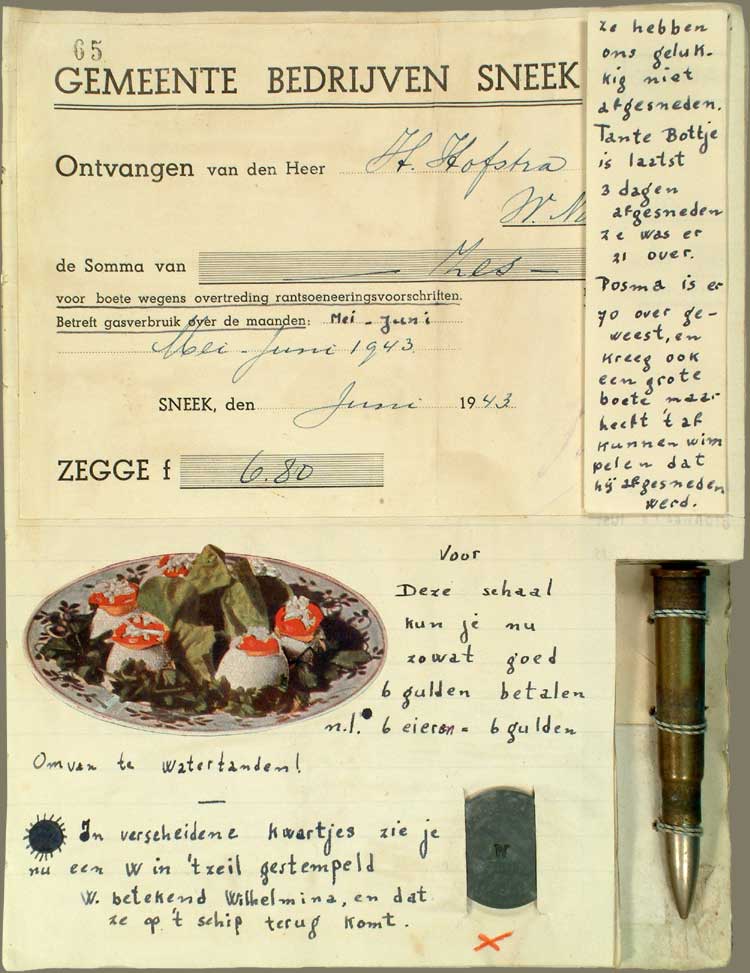 65
GEMEENTE BEDRIJVEN SNEEK
Ontvangen van den Heer H. Hofstra
W.
de Somma van Zes
voor boete wegens overtreding rantsoeneeringsvoorschriften.
Betreft gasverbruik over de maanden: Mei - Juni
Mei - Juni 1943
SNEEK, den Juni 1943
ZEGGE f 6.80
ze hebben
ons geluk-
kig niet
afgesneden.
Tante Bottje
is laatst
3 dagen
afgesneden
ze was er
21 over.
Posma is er
70 over ge-
weest, en
kreeg ook
een grote
boete maar
heeft 't af
kunnen wim
pelen dat
hij afgesneden
werd.
Voor
Deze schaal
kun je nu
zowat goed
6 gulden betalen
n.l. 6 eieren = 6 gulden
Om van te watertanden!
In verscheidene kwartjes zie je
nu een W in 't zeil gestempeld
W. betekend Wilhelmina, en dat
ze op 't schip terug komt.
W